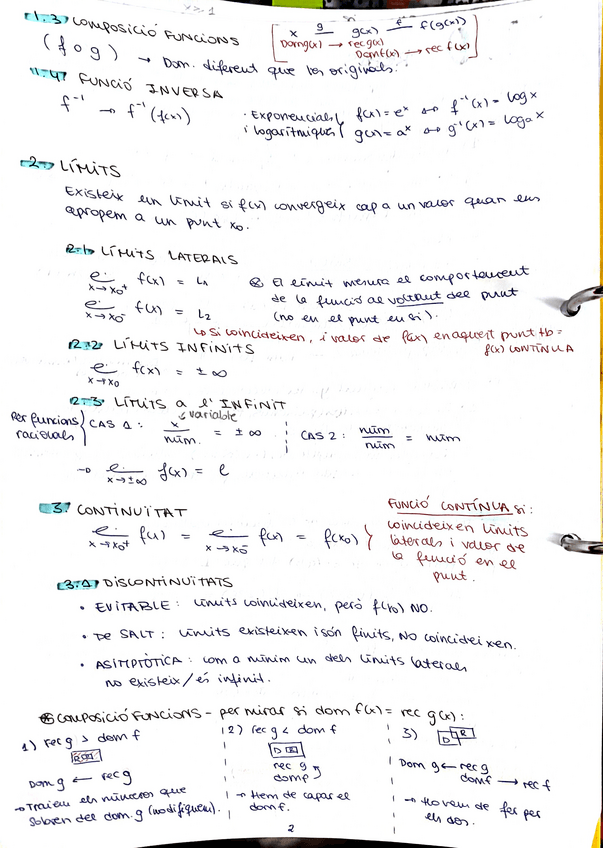 1.3 COMPOSICIÓ FUNCIONS
(f o g) → Dom. diferent que los originals.
[x g→ g(x) f→ f(g(x))
Dom g(x) → rec g(x)
Dom f(x) → rec f(x)]
1.4 FUNCIÓ INVERSA
f⁻¹ → f⁻¹(f(x))
· Exponencials { f(x) = eˣ ↔ f⁻¹(x) = log x
i logarítmiques { g(x) = aˣ ↔ g⁻¹(x) = logₐ x
2. LÍMITS
Existeix un límit si f(x) convergeix cap a un valor quan ens
apropem a un punt x₀.
2.1. LÍMITS LATERALS
ℓ. x→x₀⁺ f(x) = L₁
ℓ. x→x₀⁻ f(x) = L₂
El límit mesura el comportament
de la funció al voltant del punt
(no en el punt en si).
↳ Si coincideixen, i valor de f(x) en aquest punt tb =
f(x) CONTÍNUA
2.2 LÍMITS INFINITS
ℓ. x→x₀ f(x) = ±∞
2.3. LÍMITS a l'INFINIT
Per funcions
racionals
} CAS 1: x/núm. = ±∞
variable
CAS 2: núm/núm = núm
→ ℓ. x→±∞ f(x) = l
3. CONTINUITAT
ℓ. x→x₀⁺ f(x) = ℓ. x→x₀⁻ f(x) = f(x₀) }
FUNCIÓ CONTÍNUA si:
coincideixen límits
laterals i valor de
la funció en el
punt.
3.1 DISCONTINUÏTATS
• EVITABLE: límits coincideixen, però f(x₀) NO.
• DE SALT: límits existeixen i són finits, NO coincideixen.
• ASIMPTÒTICA: com a mínim un dels límits laterals
no existeix/és infinit.
COMPOSICIÓ FUNCIONS - per mirar si dom f(x) = rec g(x):
1) rec g > dom f
Dom g ← rec g
→ Traiem els números que
sobren del dom. g (modifiquem).
2) rec g < dom f
D R
rec g
dom f
→ Hem de capar el
dom f.
3)
D R
Dom g ← rec g
dom f → rec f
→ Ho hem de fer per
els dos.
2